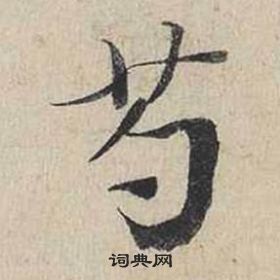 芍
词典网